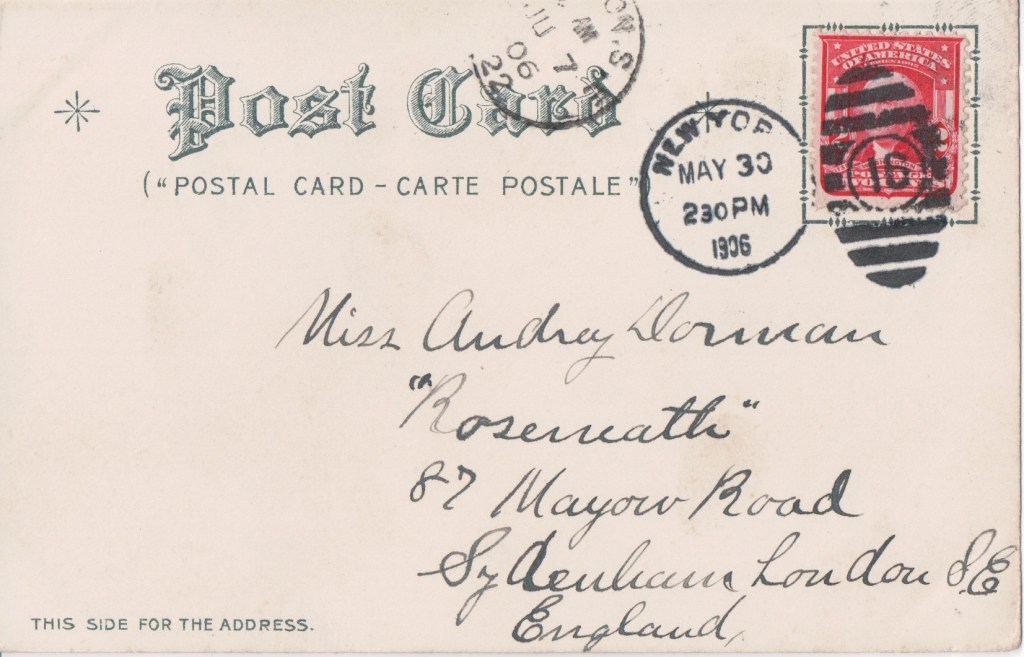 Post Card
("POSTAL CARD - CARTE POSTALE"
THIS SIDE FOR THE ADDRESS.
ON.S
AM
JU 7
06
22
NEW YOR
MAY 30
230PM
1906
UNITED STATES
OF AMERICA
10
Miss Audrey Dorman
"Roseneath"
87 Mayow Road
Sydenham London S.E
England,